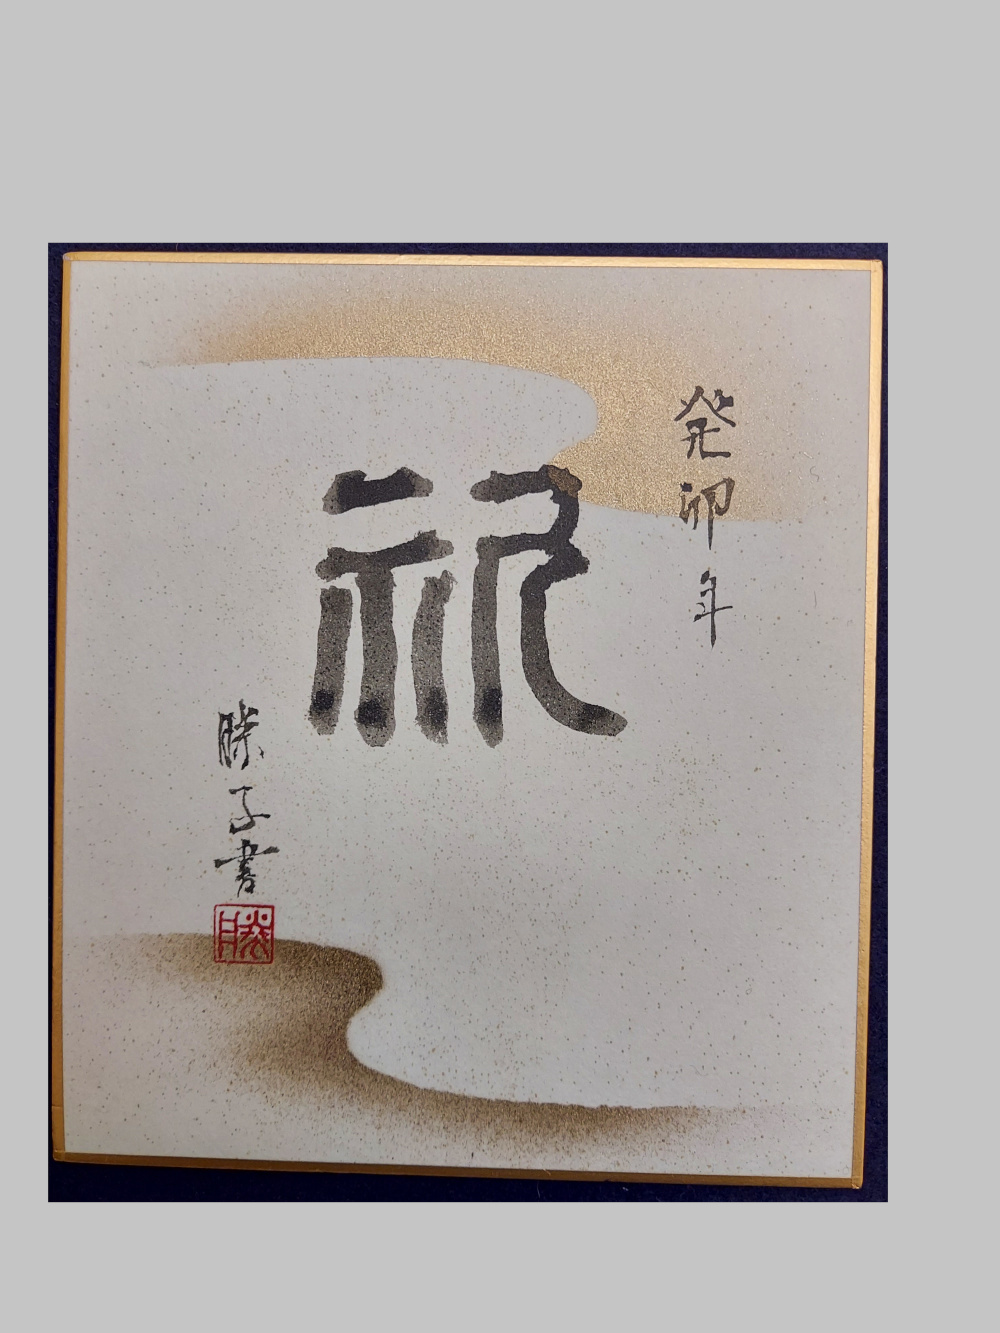 癸卯年
祝
勝子書
勝